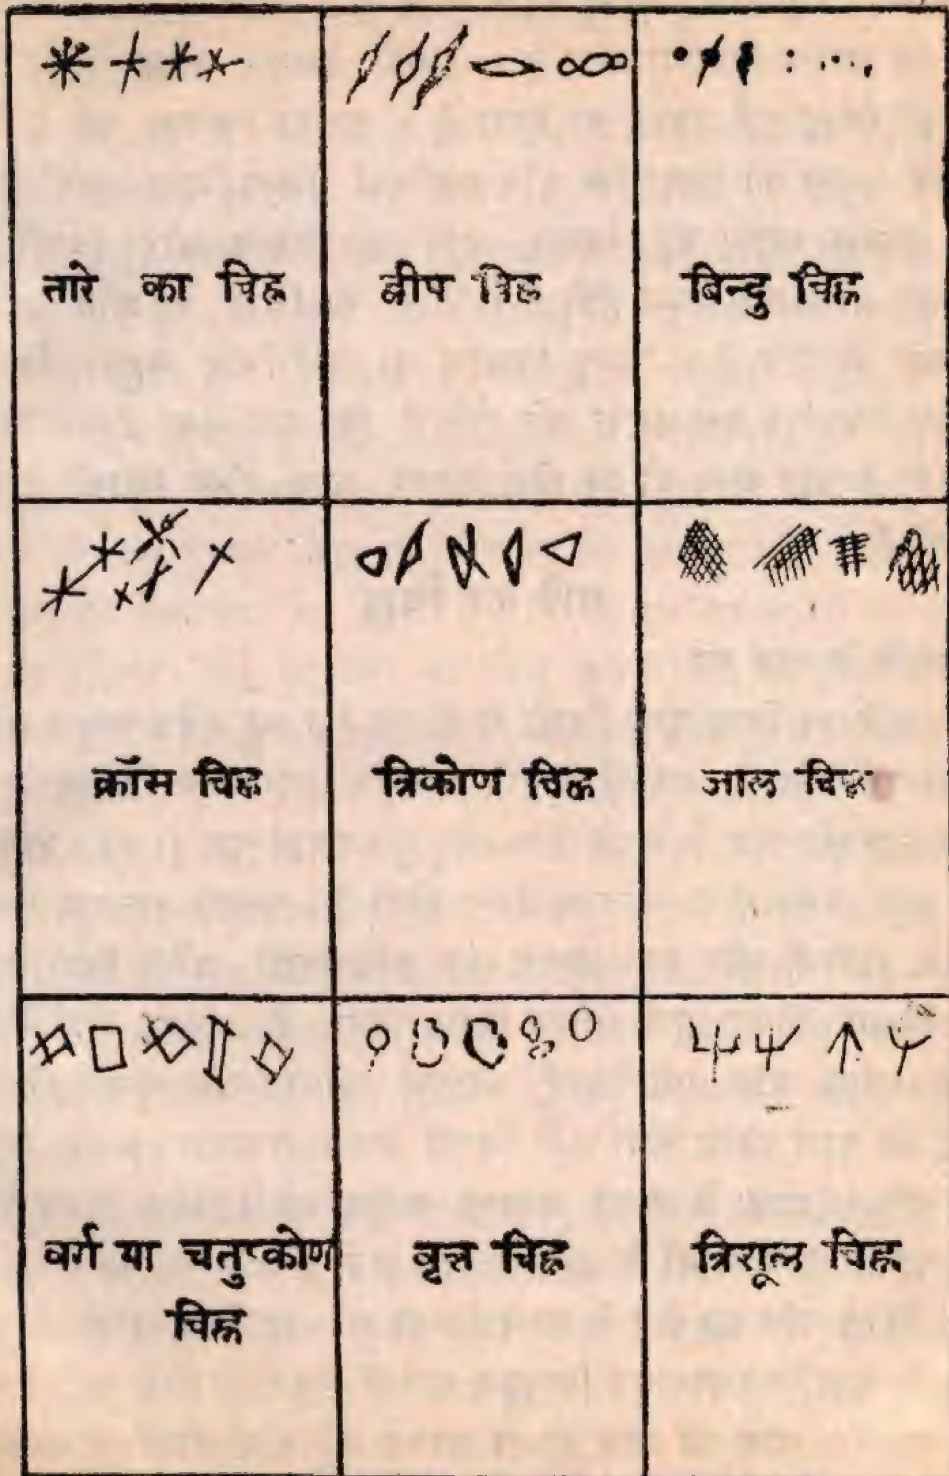 तारे का चिह्न
द्वीप चिह्न
बिन्दु चिह्न
क्रॉस चिह्न
त्रिकोण चिह्न
जाल चिह्न
वर्ग या चतुष्कोण
चिह्न
वृत्त चिह्न
त्रिशूल चिह्न